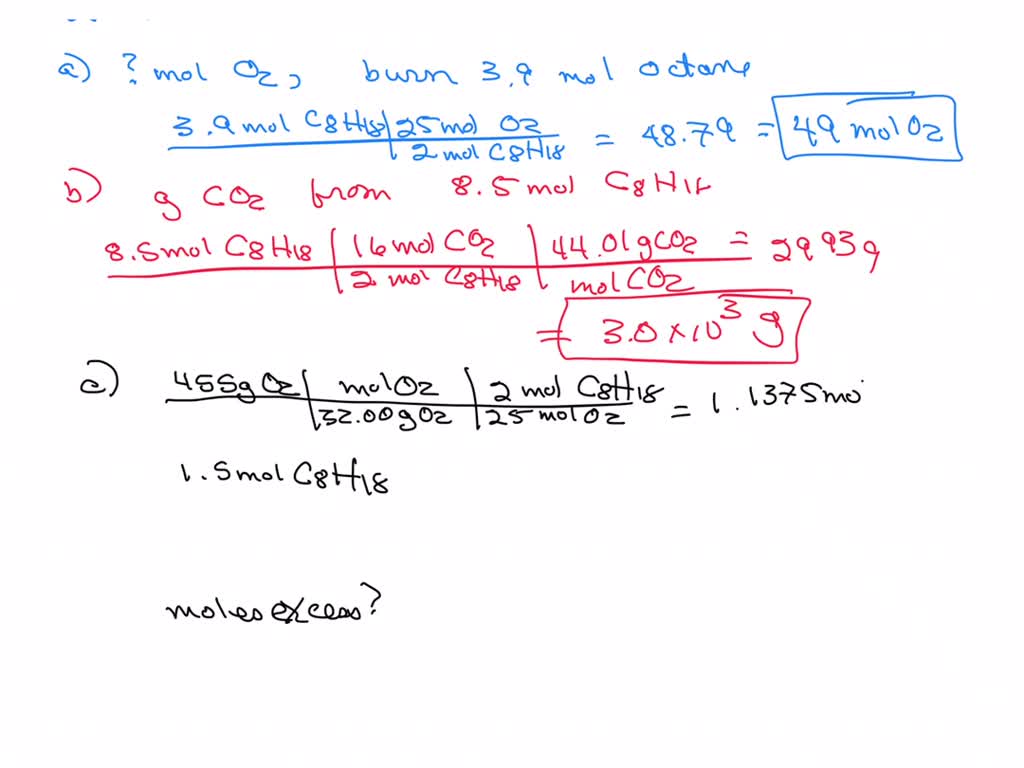 a) ? mol O2, burn 3.9 mol octane
3.9 mol C8H18 | 25 mol O2
2 mol C8H18 = 48.79 = 49 mol O2
b) g CO2 from 8.5 mol C8H18
8.5 mol C8H18 | 16 mol CO2 | 44.01 g CO2 = 2993 g
2 mol C8H18 | mol CO2
= 3.0 × 10³ g
c) 455 g O2 | mol O2 | 2 mol C8H18
32.00 g O2 | 25 mol O2 = 1.1375 mo
1.5 mol C8H18
moles excess?